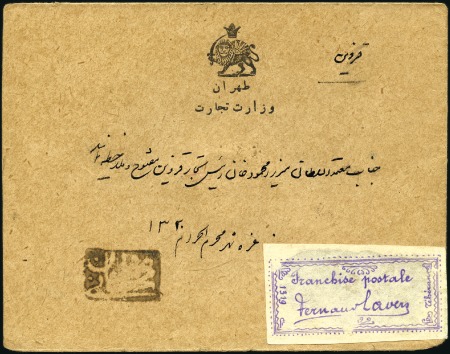 قزوین
طهران
وزارت تجارت
جناب معتمد السلطان میرزا محمود خان رئیس التجار قزوین مفتوح و ملاحظه نمایند
غره شهر محرم الحرام ۱۳۲۰
Franchise postale
1319
Téhéran
Fernand Lavers